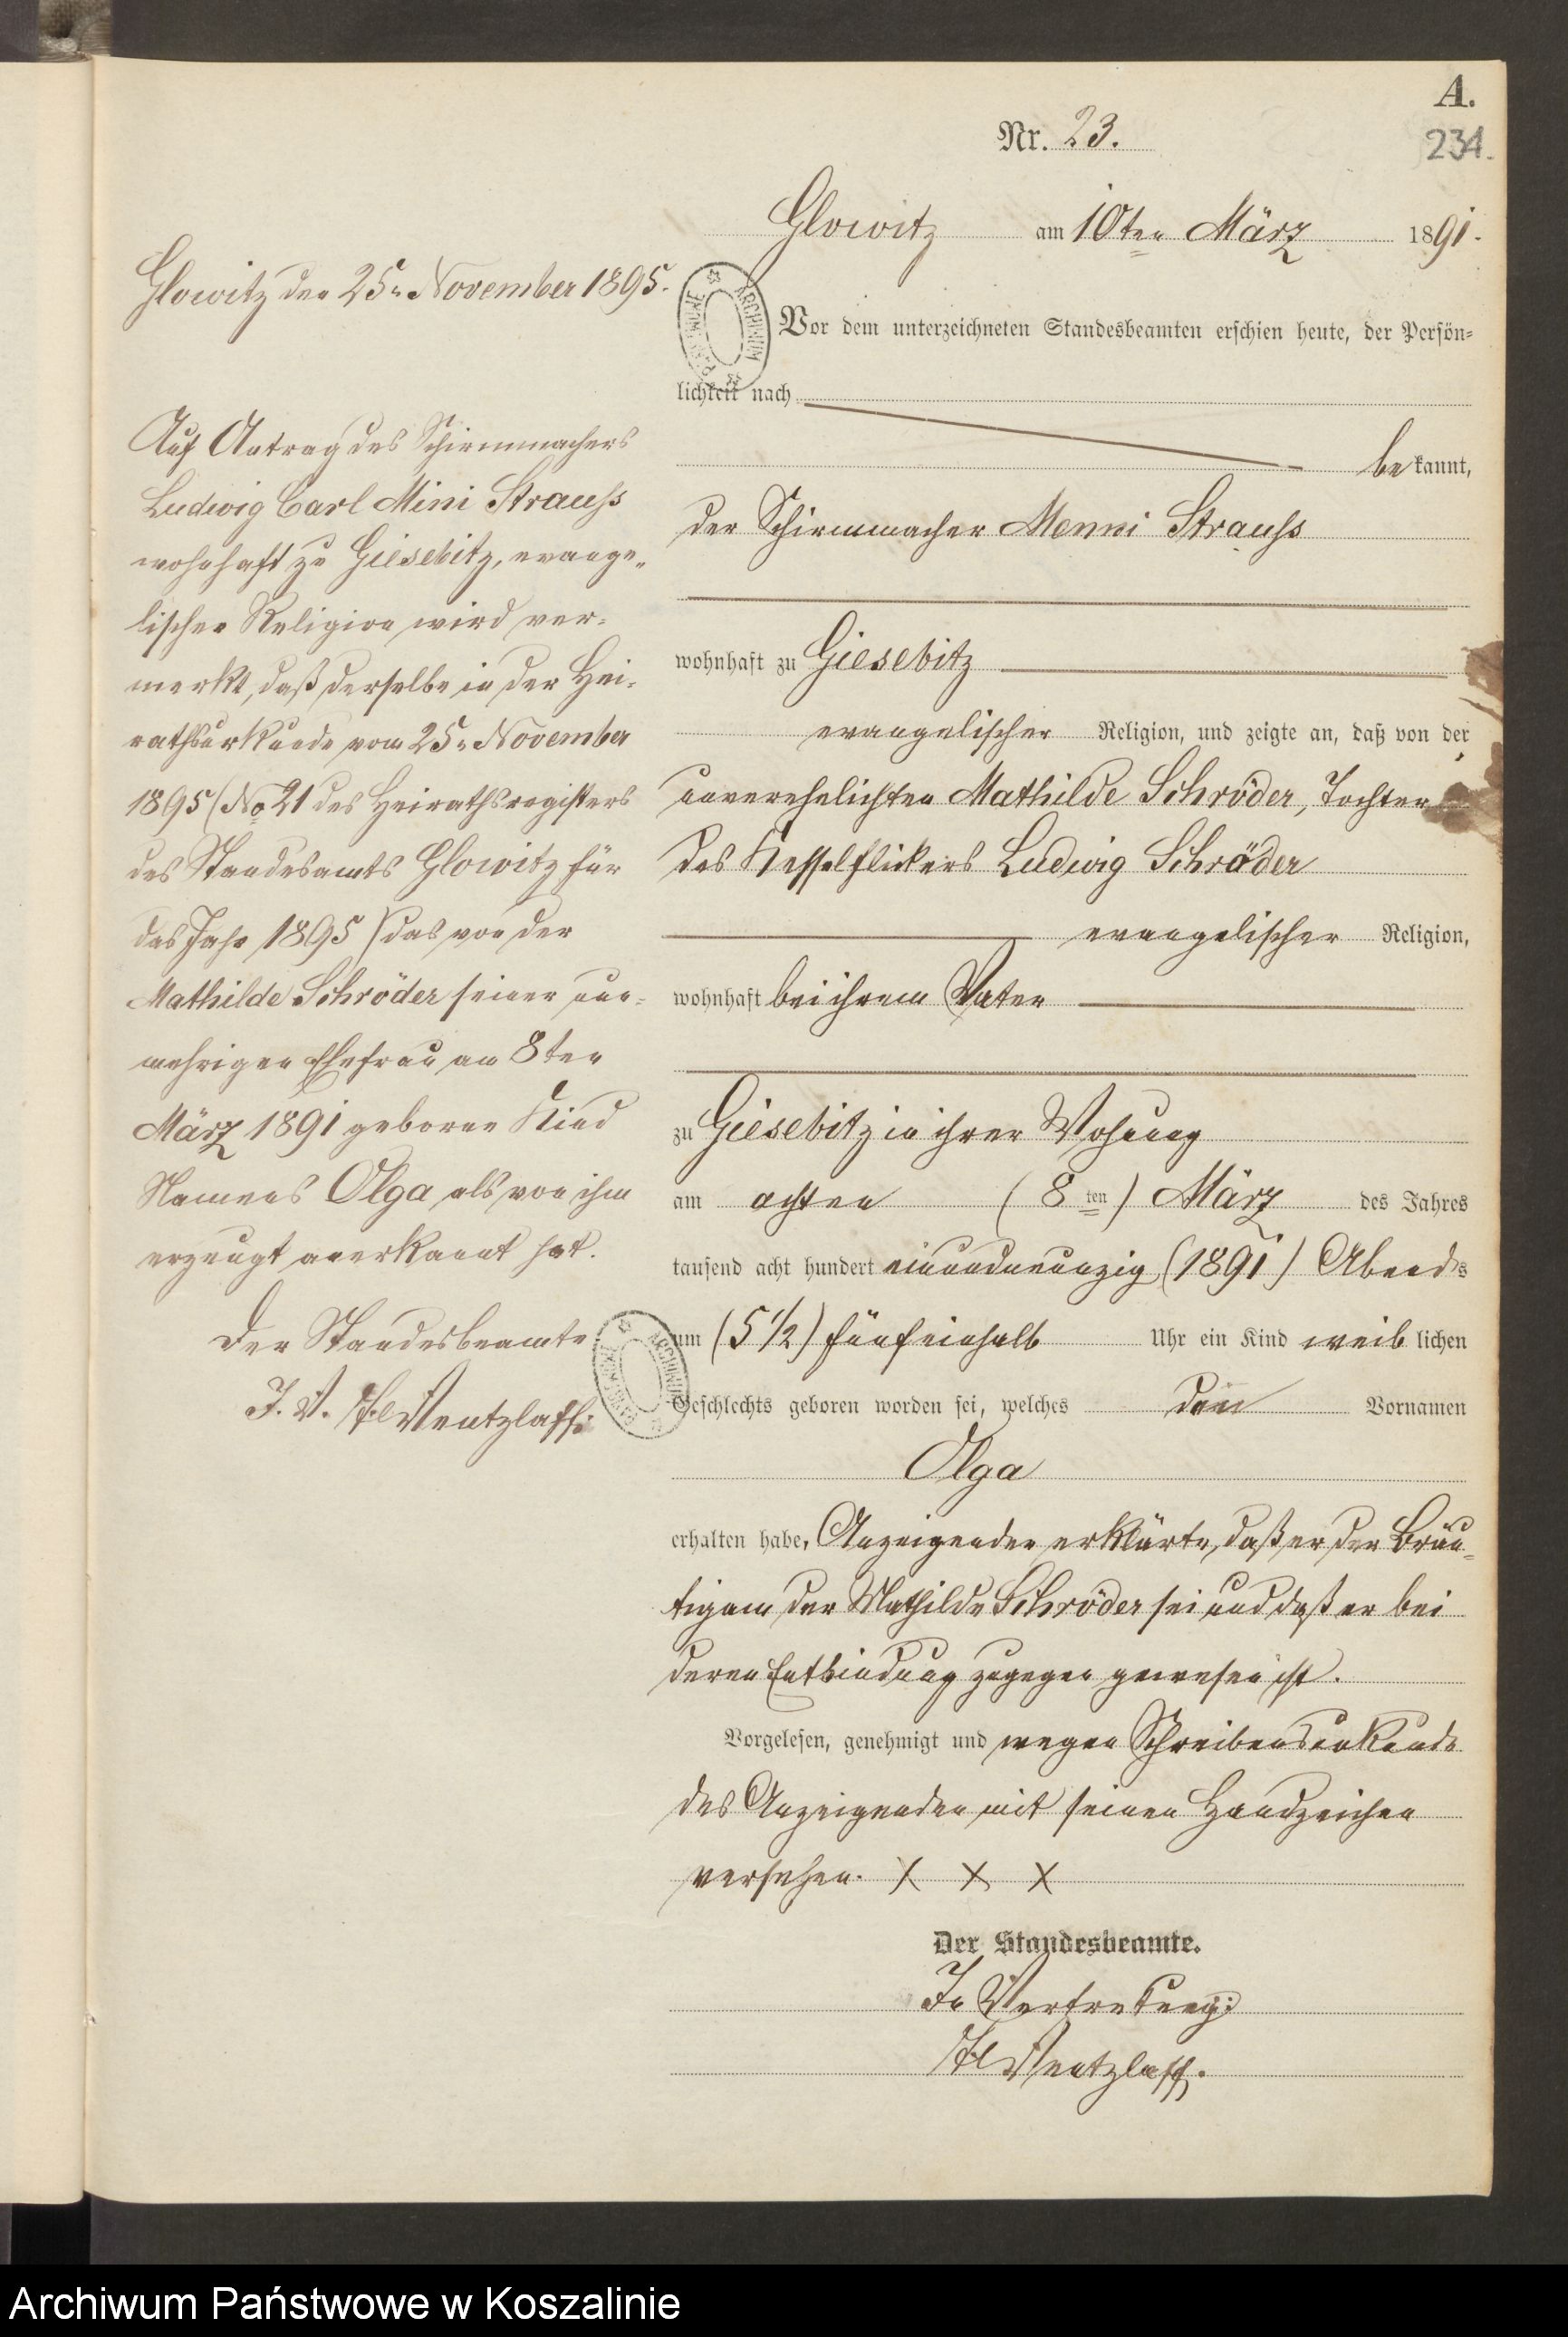 A.
Nr. 23.
234.
Glowitz am 10ten März 1891.
Vor dem unterzeichneten Standesbeamten erschien heute, der Persön=
lichkeit nach
be kannt,
der Schirmmacher Menni Strauss
wohnhaft zu Giesebitz
evangelischer Religion, und zeigte an, daß von der
unverehelichten Mathilde Schröder, Tochter
des Kesselflickers Ludwig Schröder
evangelischer Religion,
wohnhaft bei ihrem Vater
zu Giesebitz in ihrer Wohnung
am achten (8 ten) März des Jahres
tausend acht hundert einundneunzig (1891) Abends
um (5 1/2) fünfeinhalb Uhr ein Kind weib lichen
Geschlechts geboren worden sei, welches den Vornamen
Olga
erhalten habe, Anzeigender erklärte, daß er der Bräu=
tigam der Mathilde Schröder sei und daß er bei
deren Entbindung zugegen gewesen ist.
Vorgelesen, genehmigt und wegen Schreibensunkunde
des Anzeigenden mit seinen Handzeichen
versehen. X X X
Der Standesbeamte.
In Vertretung:
Wentzlaff.
Glowitz den 25n November 1895.
Auf Antrag des Schirmmachers
Ludwig Carl Mini Strauss
wohnhaft zu Giesebitz, evange=
lischer Religion wird ver=
merkt, daß derselbe in der Hei=
rathsurkunde vom 25n November
1895 (No 21 des Heirathsregisters
des Standesamts Glowitz für
das Jahr 1895) das von der
Mathilde Schröder seiner nun=
mehrigen Ehefrau am 8ten
März 1891 geborne Kind
Namens Olga als von ihm
erzeugt anerkannt hat.
Der Standesbeamte
I. V. Wentzlaff.
Archiwum Państwowe w Koszalinie